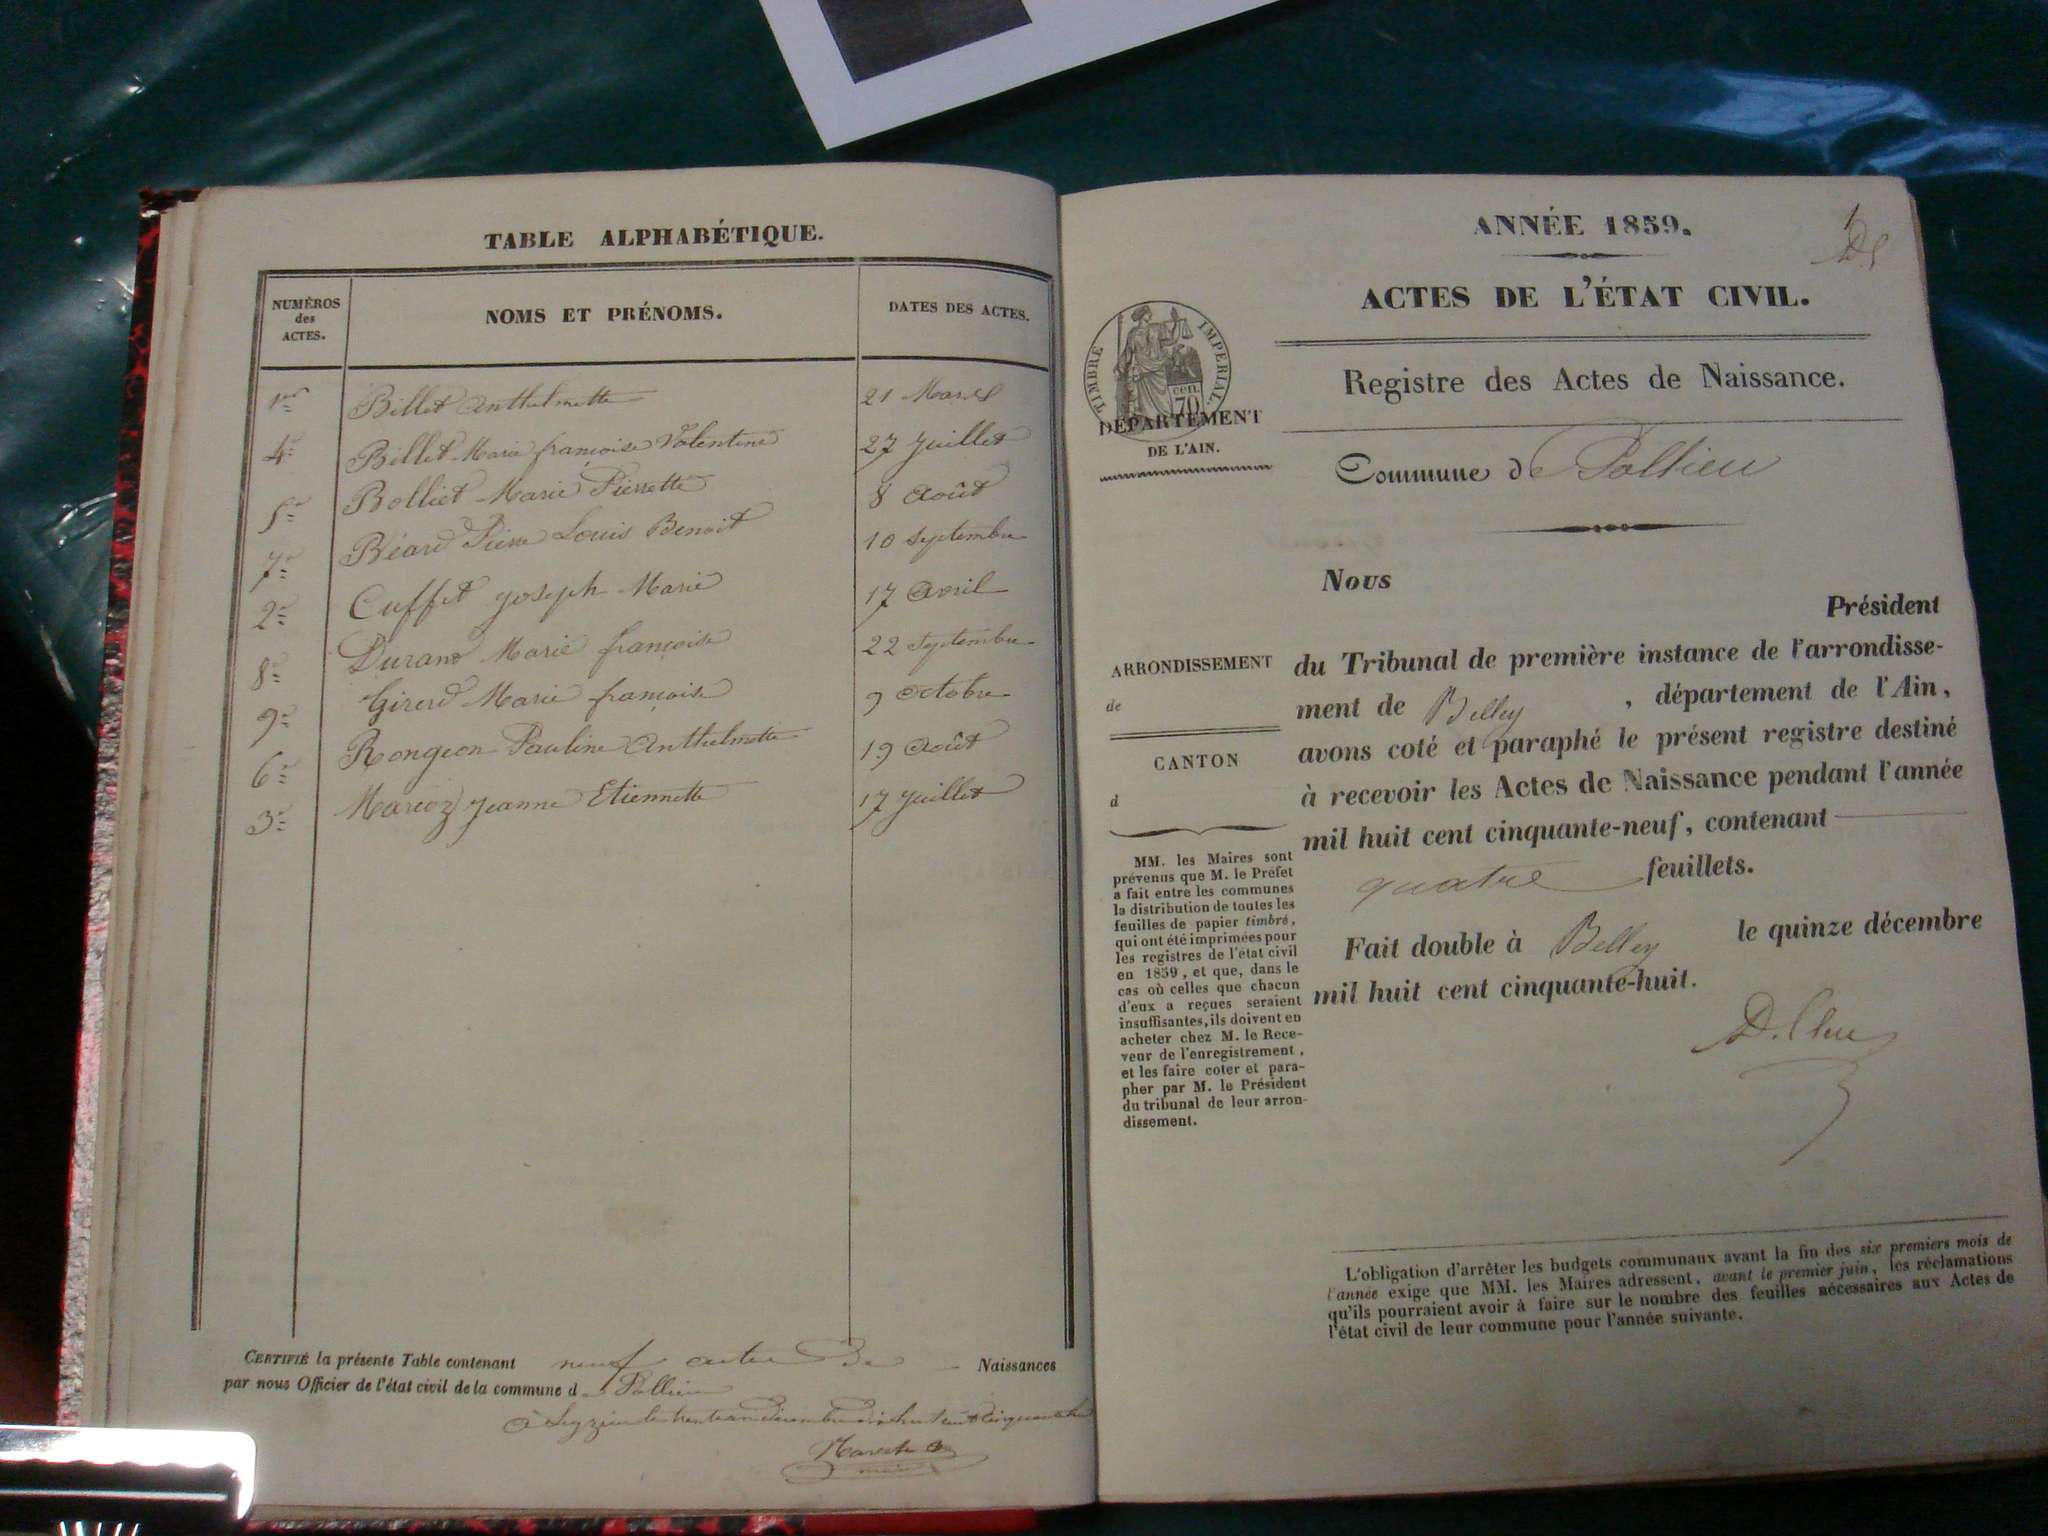 TABLE ALPHABÉTIQUE.
NUMÉROS des ACTES.
NOMS ET PRÉNOMS.
DATES DES ACTES.
1er Billet Anthelmette 21 Mars
4e Billet Marie françoise Valentine 27 Juillet
5e Bolliet Marie Pierrette 8 Août
7e Béard Pierre Louis Benoit 10 Septembre
2e Cuffet Joseph Marie 17 Avril
8e Durand Marie françoise 22 Septembre
9e Girerd Marie françoise 9 Octobre
6e Rongeon Pauline Anthelmette 19 Août
3e Marcoz Jeanne Etiennette 17 Juillet
CERTIFIÉ la présente Table contenant neuf actes De Naissances
par nous Officier de l'état civil de la commune d Pollieu
ANNÉE 1859.
ACTES DE L'ÉTAT CIVIL.
Registre des Actes de Naissance.
TIMBRE IMPERIAL.
70 cen
DÉPARTEMENT
DE L'AIN.
Commune de Pollieu
Nous
Président
du Tribunal de première instance de l'arrondisse-
ment de Belley , département de l'Ain,
avons coté et paraphé le présent registre destiné
à recevoir les Actes de Naissance pendant l'année
mil huit cent cinquante-neuf, contenant
quatre feuillets.
Fait double à Belley le quinze décembre
mil huit cent cinquante-huit.
ARRONDISSEMENT
de
CANTON
d
MM. les Maires sont
prévenus que M. le Préfet
a fait entre les communes
la distribution de toutes les
feuilles de papier timbré,
qui ont été imprimées pour
les registres de l'état civil
en 1859, et que, dans le
cas où celles que chacun
d'eux a reçues seraient
insuffisantes, ils doivent en
acheter chez M. le Rece-
veur de l'enregistrement,
et les faire coter et para-
pher par M. le Président
du tribunal de leur arron-
dissement.
L'obligation d'arrêter les budgets communaux avant la fin des six premiers mois de
l'année exige que MM. les Maires adressent, avant le premier juin, les réclamations
qu'ils pourraient avoir à faire sur le nombre des feuilles nécessaires aux Actes de
l'état civil de leur commune pour l'année suivante.